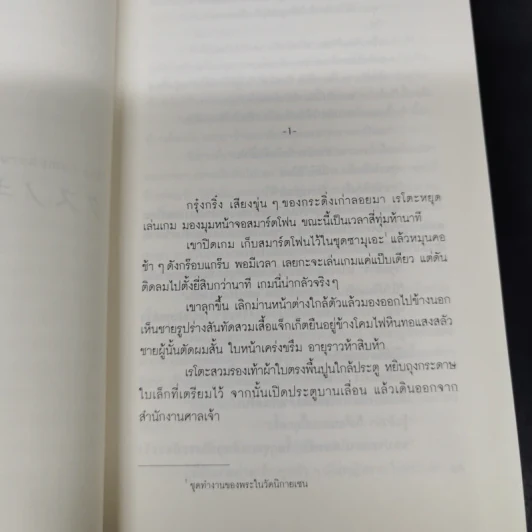 -1-
กรุ๋งกริ๋ง เสียงขุ่น ๆ ของกระดิ่งเก่าลอยมา เรโตะหยุด
เล่นเกม มองมุมหน้าจอสมาร์ตโฟน ขณะนี้เป็นเวลาสี่ทุ่มห้านาที
เขาปิดเกม เก็บสมาร์ตโฟนไว้ในชุดซามุเอะ¹ แล้วหมุนคอ
ช้า ๆ ดังกร๊อบแกร๊บ พอมีเวลา เลยกะจะเล่นเกมแค่แป๊บเดียว แต่ดัน
ติดลมไปตั้งยี่สิบกว่านาที เกมนี้น่ากลัวจริง ๆ
เขาลุกขึ้น เลิกม่านหน้าต่างใกล้ตัวแล้วมองออกไปข้างนอก
เห็นชายรูปร่างสันทัดสวมเสื้อแจ็กเก็ตยืนอยู่ข้างโคมไฟหินทอแสงสลัว
ชายผู้นั้นตัดผมสั้น ใบหน้าเคร่งขรึม อายุราวห้าสิบห้า
เรโตะสวมรองเท้าผ้าใบตรงพื้นปูนใกล้ประตู หยิบถุงกระดาษ
ใบเล็กที่เตรียมไว้ จากนั้นเปิดประตูบานเลื่อน แล้วเดินออกจาก
สำนักงานศาลเจ้า
¹ ชุดทำงานของพระในวัดนิกายเซน